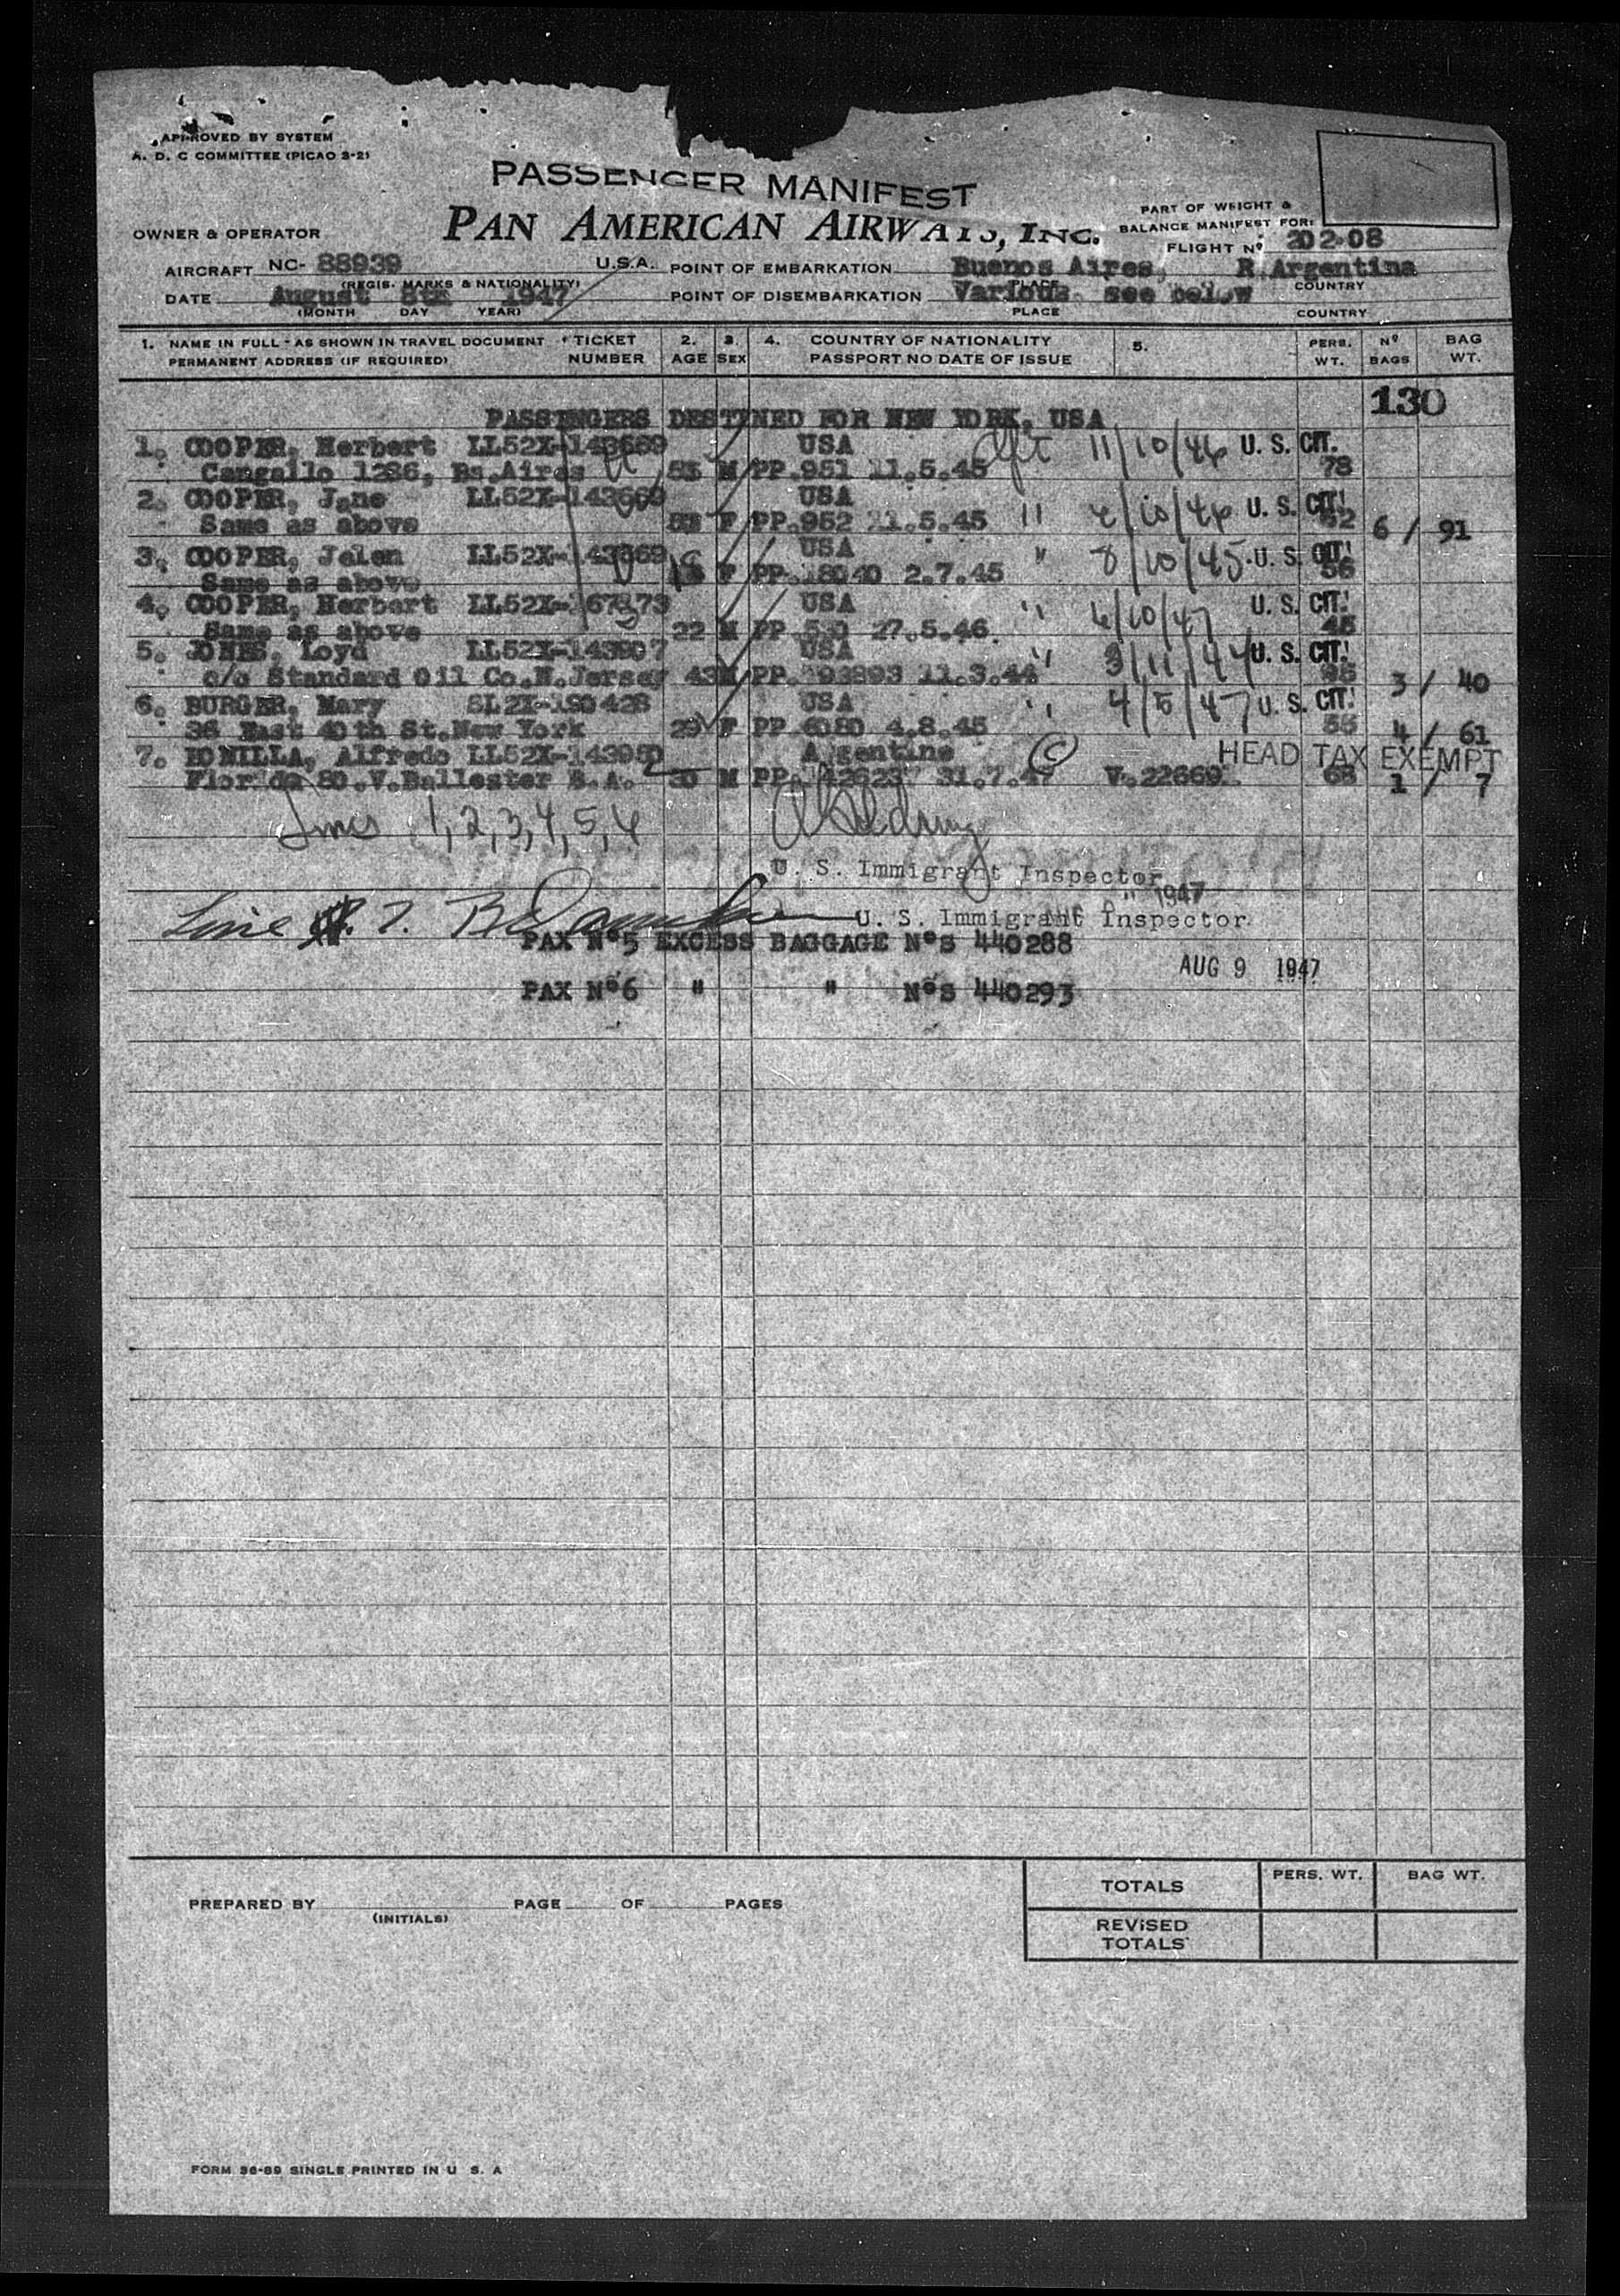 APPROVED BY SYSTEM
A. D. C COMMITTEE (PICAO 3-2)
PASSENGER MANIFEST
PAN AMERICAN AIRWAYS, INC.
PART OF WEIGHT &
BALANCE MANIFEST FOR:
OWNER & OPERATOR
FLIGHT Nº 202-08
AIRCRAFT NC- 88939 U.S.A. POINT OF EMBARKATION Buenos Aires, R.Argentina
(REGIS. MARKS & NATIONALITY) PLACE COUNTRY
DATE August 8th 1947 POINT OF DISEMBARKATION Various see below
(MONTH DAY YEAR) PLACE COUNTRY
1. NAME IN FULL - AS SHOWN IN TRAVEL DOCUMENT TICKET 2. 3. 4. COUNTRY OF NATIONALITY 5. PERS. Nº BAG
PERMANENT ADDRESS (IF REQUIRED) NUMBER AGE SEX PASSPORT NO DATE OF ISSUE WT. BAGS WT.
130
PASSENGERS DESTINED FOR NEW YORK, USA
1. COOPER, Herbert LL52X-143669 USA 11/10/46 U. S. CIT.
Cangallo 1286, Bs.Aires 53 M PP.951 11.5.45 78
2. COOPER, Jane LL52X-143669 USA U. S. CIT.
Same as above F PP.952 11.5.45 " 52 6 / 91
3. COOPER, Jelen LL52X-143669 USA " 8/10/45 U. S. CIT.
Same as above F PP.18040 2.7.45 56
4. COOPER, Herbert USA " 6/10/47 U. S. CIT.
Same as above 22 M PP.530 27.5.46. 45
5. JONES, Loyd LL52X-143907 USA " 3/11/44 U. S. CIT.
c/o Standard Oil Co.N.Jersey 43 M PP.193893 11.3.44 3 / 40
6. BURGER, Mary SL2X-190428 USA " 4/5/47 U. S. CIT.
36 East 40th St.New York 29 F PP.6080 4.8.45 55 4 / 61
7. BONILLA, Alfredo LL52X-143950 Argentine C HEAD TAX EXEMPT
Florida 80.V.Ballester B.A. 30 M 31.7.47 V.22669 68 1 / 7
Lines 1, 2, 3, 4, 5, 6
U. S. Immigrant Inspector
1947
Line 7. U. S. Immigrant Inspector
PAX Nº5 EXCESS BAGGAGE NºS 440288
AUG 9 1947
PAX Nº6 " " NºS 440293
TOTALS PERS. WT. BAG WT.
PREPARED BY PAGE OF PAGES
(INITIALS)
REVISED
TOTALS
FORM 36-89 SINGLE PRINTED IN U S. A